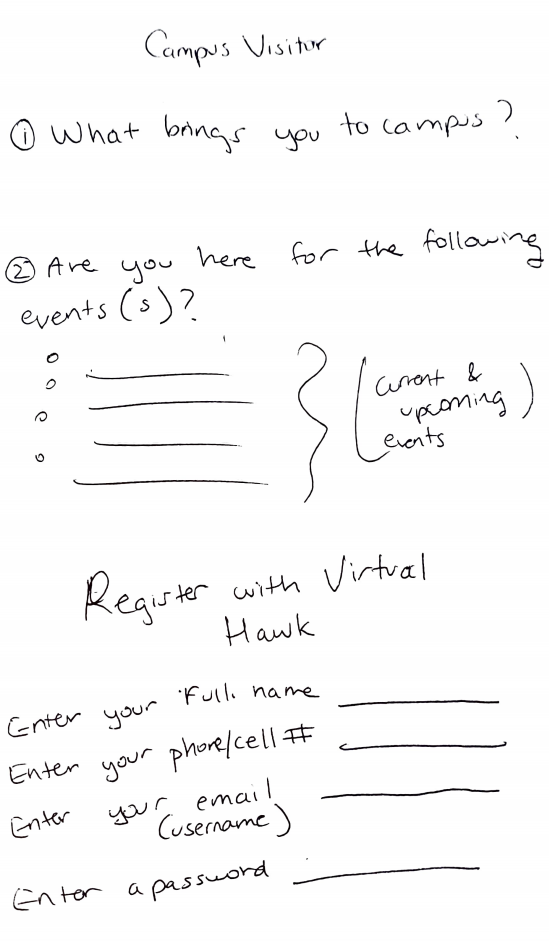 Campus Visitor
① What brings you to campus?
② Are you here for the following
events(s)?
(current &
upcoming)
events
Register with Virtual
Hawk
Enter your Full name
Enter your phone/cell #
Enter your email
(username)
Enter a password